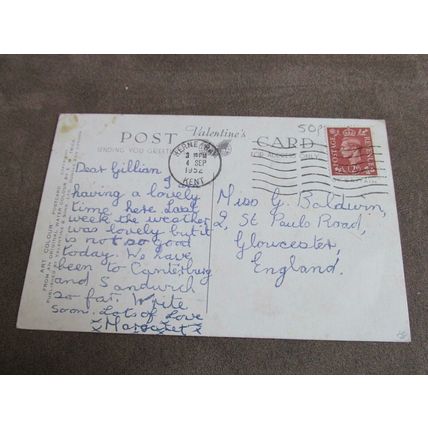 POST Valentine's CARD
50p
SENDING YOU GREETINGS
FOR ADDRESS ONLY
HERNE BAY
3 PM
4 SEP
1952
KENT
POSTAGE REVENUE
Dear Gillian
I am
having a lovely
time here. Last
week the weather
was lovely but it
is not so good
today. We have
been to Canterbury
and Sandwich
so far. Write
soon. Lots of Love
Margaret
Miss G. Baldwin,
2, St Pauls Road,
Gloucester,
England.
"ART COLOUR" POSTCARD
FROM AN ORIGINAL WATER COLOUR